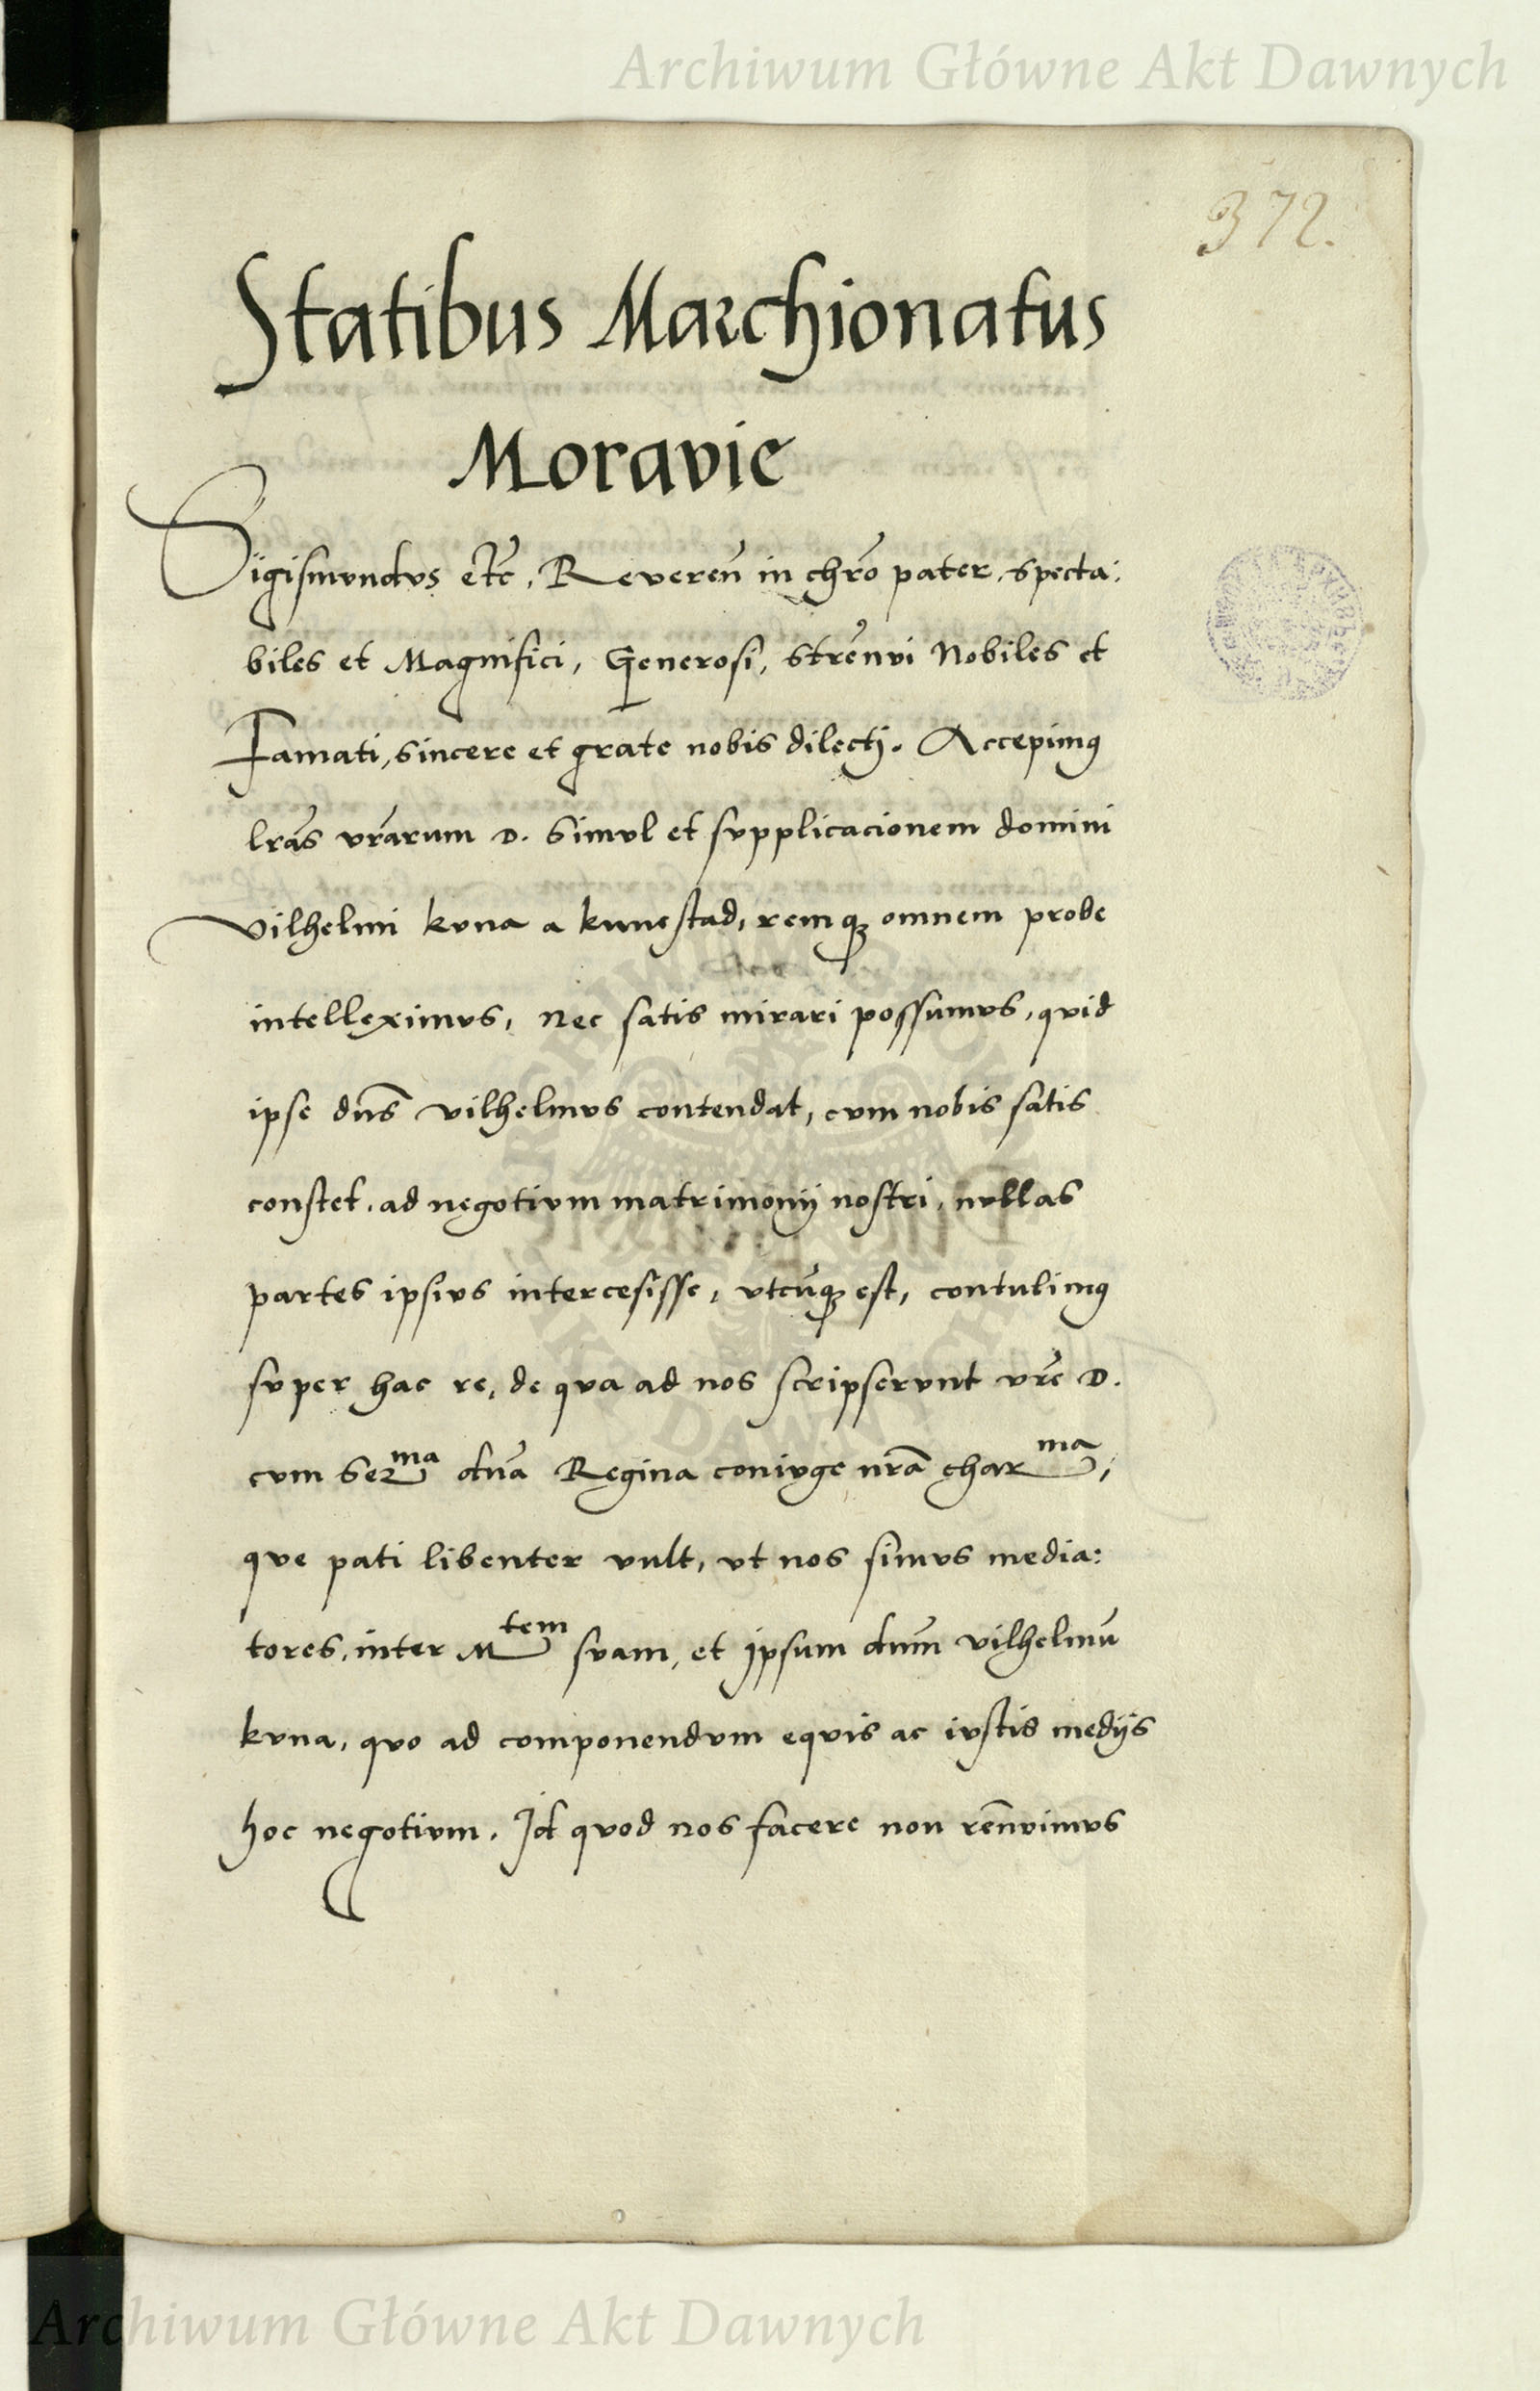 Archiwum Główne Akt Dawnych
372.
Statibus Marchionatus
Moravie
Sigismundvs etc̃, Reveren̄ in chr̃o pater, specta:
biles et Magnifici, Generosi, strẽnvi Nobiles et
Famati, sincere et grate nobis dilectj. Accepimꝯ
lrãs vrãrum D. simvl et svpplicacionem domini
Vilhelmi kvna a kunestad, remqꝫ omnem probe
intelleximvs, Nec satis mirari possumvs, qvid
ipse dn̄s vilhelmvs contendat, cvm nobis satis
constet, ad negotivm matrimonij nostri, nvllas
partes ipsivs intercesisse, vtcũqꝫ est, contulimꝯ
svper hac re, de qva ad nos scripservnt vrẽ D.
cvm Serᵐᵃ dn̄a Regina conivge nrã charᵐᵃ,
qve pati libenter vult, vt nos simvs media:
tores, inter Mᵗᵉᵐ svam, et ipsum dnm̄ vilhelmū
kvna, qvo ad componendvm eqvis ac ivstis medijs
hoc negotivm. Id qvod nos facere non rẽnvimvs
Archiwum Główne Akt Dawnych